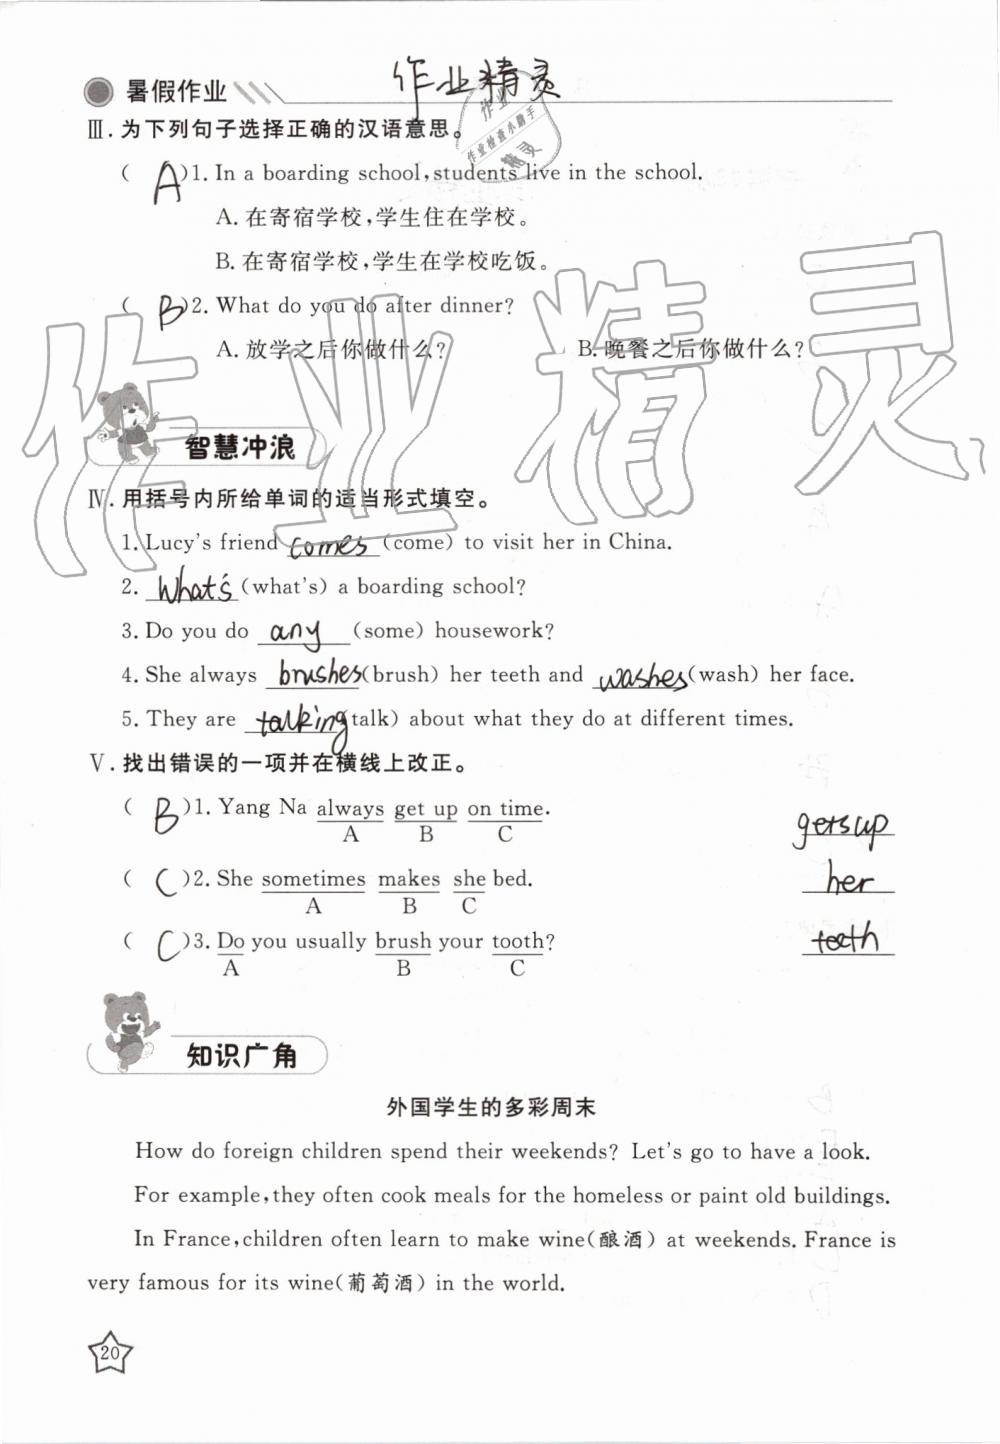 暑假作业
作业精灵
Ⅲ.为下列句子选择正确的汉语意思。
作业
作业检查小助手
精灵
( A )1. In a boarding school,students live in the school.
A. 在寄宿学校,学生住在学校。
B. 在寄宿学校,学生在学校吃饭。
( B )2. What do you do after dinner?
A. 放学之后你做什么? B. 晚餐之后你做什么?
作业精灵
智慧冲浪
Ⅳ.用括号内所给单词的适当形式填空。
1. Lucy's friend comes (come) to visit her in China.
2. What's (what's) a boarding school?
3. Do you do any (some) housework?
4. She always brushes (brush) her teeth and washes (wash) her face.
5. They are talking talk) about what they do at different times.
Ⅴ.找出错误的一项并在横线上改正。
( B )1. Yang Na always get up on time. gets up
A B C
( C )2. She sometimes makes she bed. her
A B C
( C )3. Do you usually brush your tooth? teeth
A B C
知识广角
外国学生的多彩周末
How do foreign children spend their weekends? Let's go to have a look.
For example,they often cook meals for the homeless or paint old buildings.
In France,children often learn to make wine(酿酒) at weekends. France is
very famous for its wine(葡萄酒) in the world.
20